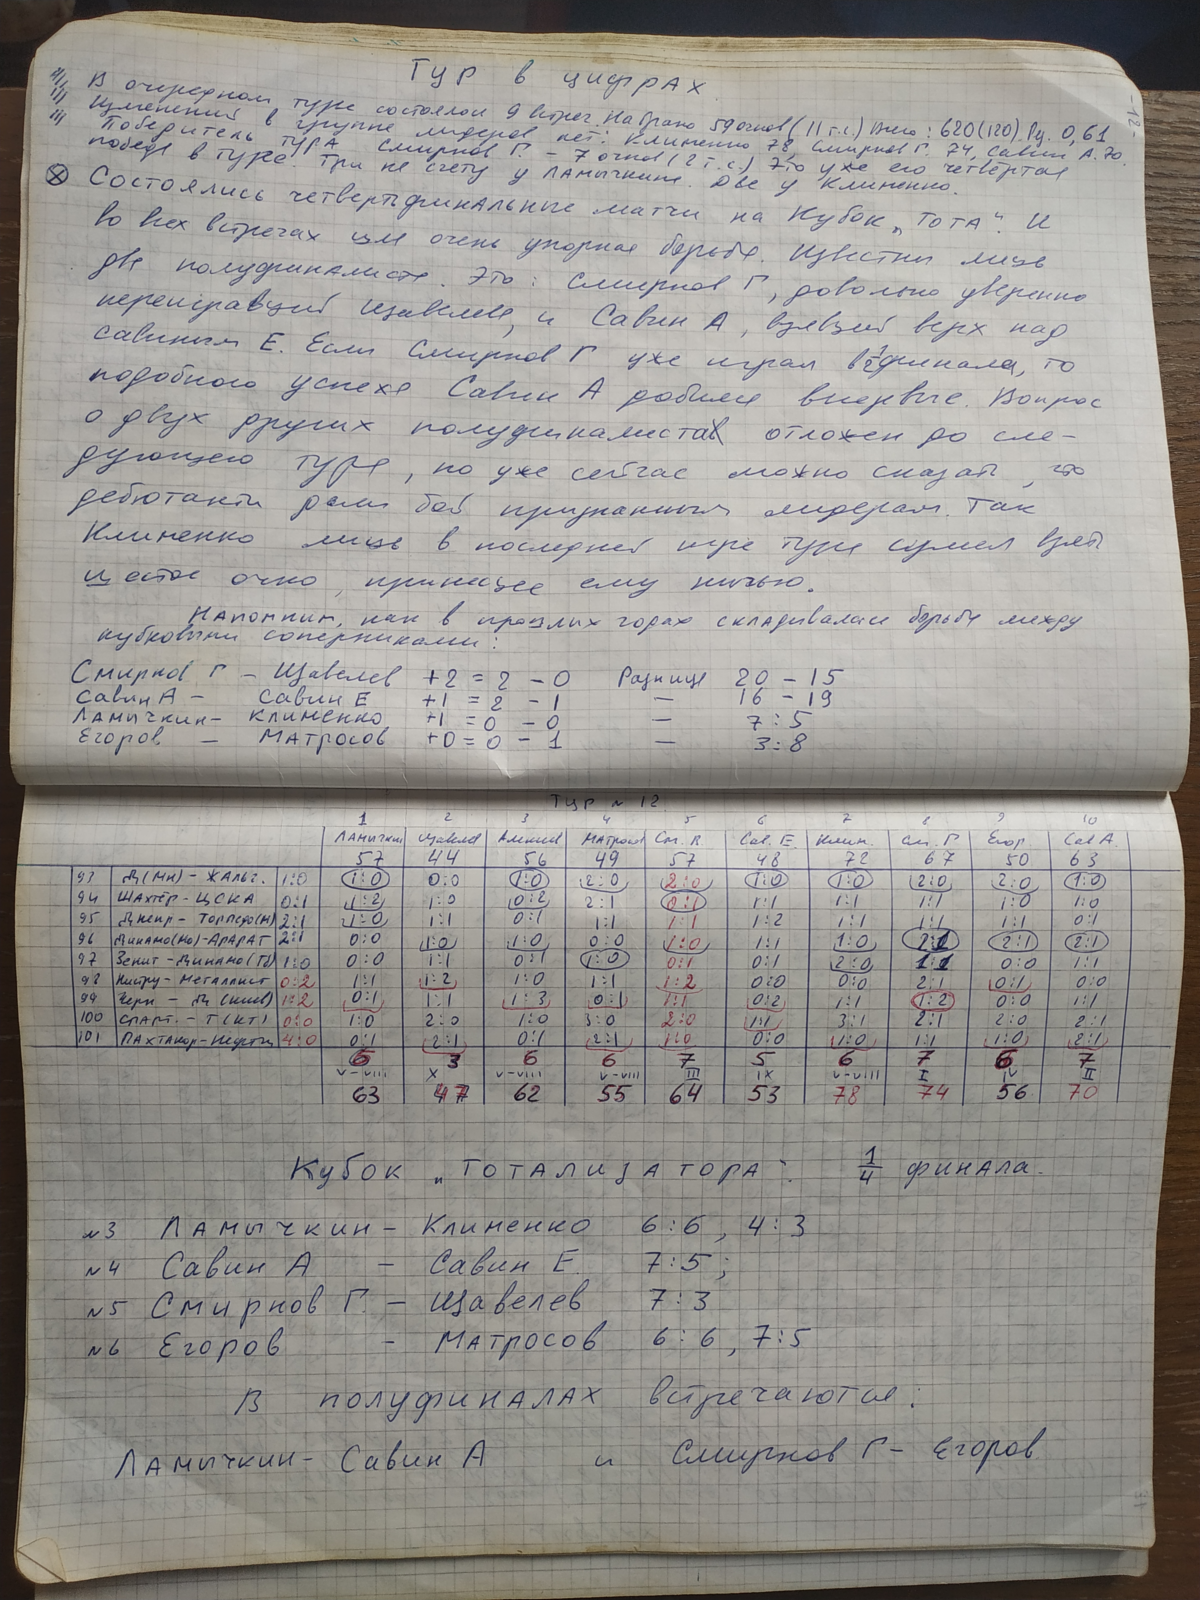 Тур в цифрах.
В очередном туре состоялось 9 встреч. Набрано 59 очков (11 т.с.) Всего: 620 (120). Рц. 0,61
Изменений в группе лидеров нет: Клименко 78, Смирнов Г. 74, Савин А. 70.
Победитель тура Смирнов Г. – 7 очков (2 т.с.) Это уже его четвёртая
победа в туре. Три на счету у Ламычкина. Две у Клименко.
Состоялись четвертьфинальные матчи на Кубок „Тота“. И
во всех встречах шла очень упорная борьба. Известны лишь
два полуфиналиста. Это: Смирнов Г, довольно уверенно
переигравший Щавелева, и Савин А, взявший верх над
Савиным Е. Если Смирнов Г уже играл в 1/2 финала, то
подобного успеха Савин А добился впервые. Вопрос
о двух других полуфиналистах отложен до сле-
дующего тура, но уже сейчас можно сказать, что
дебютанты дали бой признанным лидерам. Так
Клименко лишь в последней игре тура сумел взять
шестое очко, принёсшее ему ничью.
Напомним, как в прошлых годах складывалась борьба между
кубковыми соперниками:
Смирнов Г – Щавелев +2 = 2 – 0 Разница 20 – 15
Савин А – Савин Е +1 = 2 – 1 — 16 – 19
Ламычкин – Клименко +1 = 0 – 0 — 7 : 5
Егоров – Матросов +0 = 0 – 1 — 3 : 8
Тур № 12
1 2 3 4 5 6 7 8 9 10
Ламычкин Щавелев Матросов См. Сав. Е. Клим. См. Г Егор Сав А.
57 44 56 49 57 48 72 67 50 63
93 Д(Мн) – Жальг. 1:0 1:0 0:0 1:0 2:0 2:0 1:0 1:0 2:0 2:0 1:0
94 Шахтёр – ЦСКА 0:1 1:2 1:0 0:2 2:1 0:1 1:1 1:0 1:1 1:0 1:0
95 Днепр – Торпедо(М) 2:1 1:0 1:1 0:1 1:1 1:1 1:2 1:1 1:1 1:1 0:1
96 Динамо(Мо) – Арарат 2:1 0:0 1:0 1:0 0:0 1:0 1:1 1:0 2:1 2:1 2:1
97 Зенит – Динамо(Тб) 1:0 0:0 1:1 0:1 1:0 0:1 0:1 2:0 1:1 0:0 1:1
98 Нистру – Металлист 0:2 1:1 1:2 1:0 1:1 1:2 0:0 0:0 2:1 0:1 0:0
99 Черн – Д (Киев) 1:2 0:1 1:1 1:3 0:1 1:1 0:2 1:1 1:2 0:0 1:1
100 Спарт. – Т(КТ) 0:0 1:0 2:0 1:0 3:0 2:0 1:1 3:1 2:1 2:0 2:1
101 Пахтакор – Нефтчи 4:0 0:1 2:1 0:1 2:1 1:0 0:0 1:0 1:1 1:0 2:1
6 3 6 6 7 5 6 7 6 7
V–VIII X V–VIII V–VIII III IX V–VIII I IV II
63 47 62 55 64 53 78 74 56 70
Кубок „Тотализатора“. 1/4 финала.
№3 Ламычкин – Клименко 6:6, 4:3
№4 Савин А – Савин Е. 7:5;
№5 Смирнов Г. – Щавелев 7:3
№6 Егоров – Матросов 6:6, 7:5
В полуфиналах встречаются:
Ламычкин – Савин А и Смирнов Г – Егоров